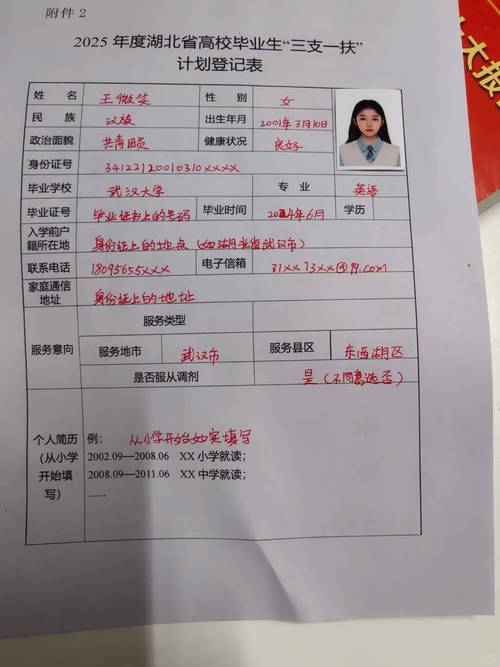 附件 2
2025 年度湖北省高校毕业生“三支一扶”
计划登记表
姓 名 王微笑 性 别 女
民 族 汉族 出生年月 2001年3月10日
政治面貌 共青团员 健康状况 良好
身份证号 34122120010310xxxx
毕业学校 武汉大学 专 业 英语
毕业证号 毕业证书上的号码 毕业时间 2024年6月 学历
入学前户
籍所在地 身份证上的地点(如湖北省武汉市)
联系电话 18095655xxx 电子信箱 31xx73xx@qq.com
家庭通信
地址 身份证上的地址
服务意向 服务类型
服务地市 武汉市 服务县区 东西湖区
是否服从调剂 是(不同意选否)
个人简历
(从小学
开始填
写)
例: 从小学开始如实填写
2002.09—2008.06 XX 小学就读;
2008.09—2011.06 XX 中学就读;
……
大报